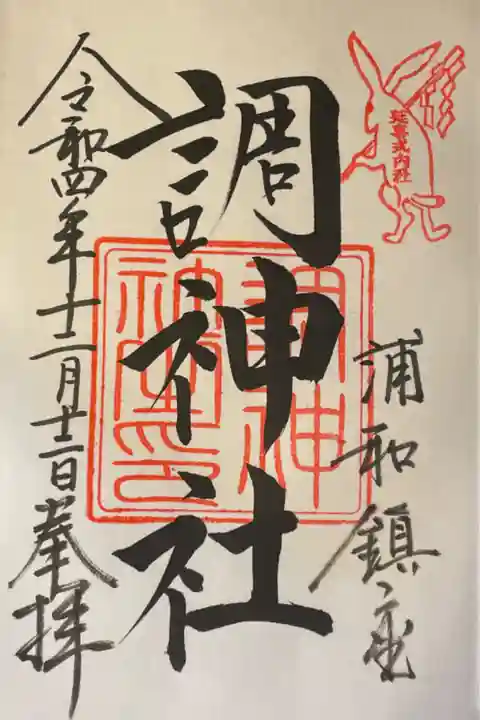 延喜式内社
浦和鎮座
調神社
調神社印
令和四年十二月十二日奉拝